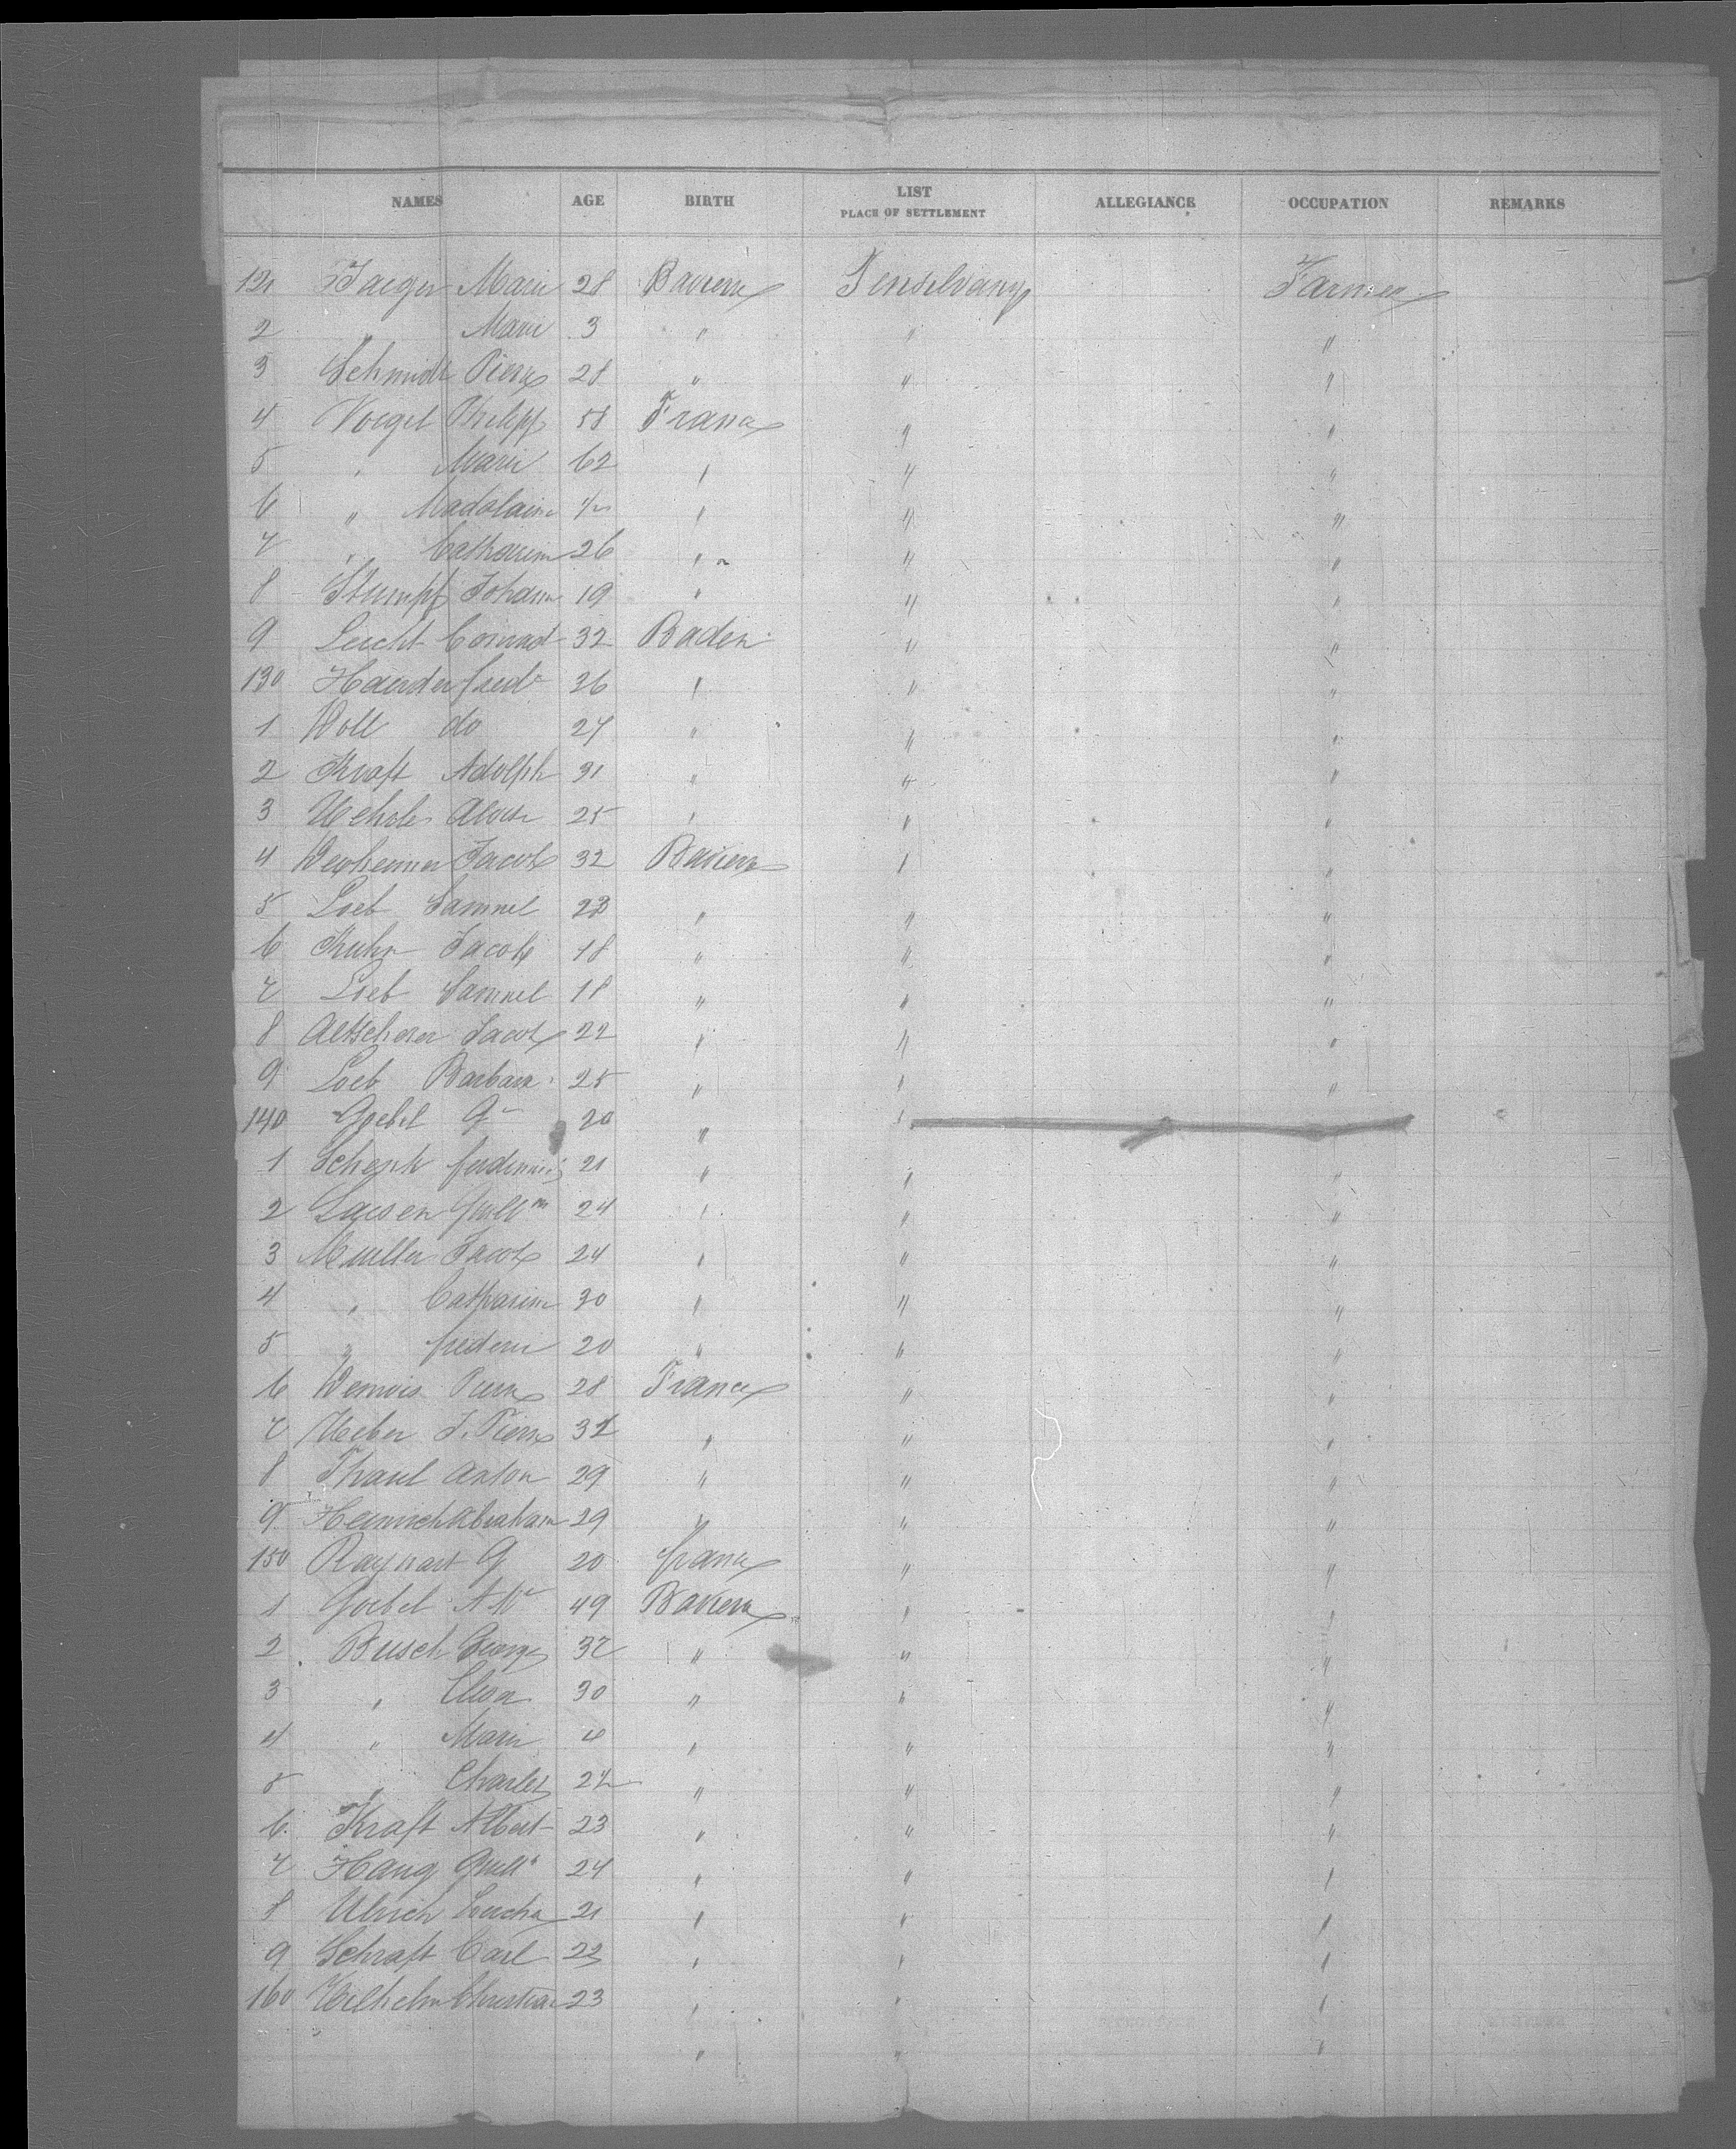 NAMES AGE BIRTH LIST PLACE OF SETTLEMENT ALLEGIANCE OCCUPATION REMARKS
121 Jaeger Marie 28 Baviere Penselvany Farmer
2 " Marie 3 " " "
3 Schmidt Pierre 28 " " "
4 Voegel Philipp 58 France " "
5 " Marie 62 " " "
6 " Madalaine " " "
7 " Catharine 26 " " "
8 Stumpf Johann 19 " " "
9 Leicht Conrad 32 Baden " "
130 Haerder fredc 26 " " "
1 Woll do 27 " " "
2 Kraft Adolph 31 " " "
3 25 " " "
4 Jacob 32 Baviere " "
5 Loeb Samuel " " "
6 Kuhn Jacob 18 " " "
7 Loeb Samuel 18 " " "
8 Jacob 22 " " "
9 Loeb Barbara 25 " " "
140 Goebel G 20 " "
1 Schenk 21 " " "
2 Guillm 24 " " "
3 Mueller Jacob 24 " " "
4 " Catharine 30 " " "
5 " 20 " " "
6 Pierre 28 France " "
7 Weber J. Pierre " " "
8 Anton 29 " " "
9 Heinrich Abraham 29 " " "
150 G 20 france " "
1 Goebel 49 Baviere " "
2 Busch George 37 " " "
3 " Elisa 30 " " "
4 " Marie 4 " " "
5 " Charles " " "
6 Kraft Albert 23 " " "
7 Haug Guill 24 " " "
8 Ulrich 21 " " "
9 Schraft Carl 23 " " "
160 Wilhelm Christian 23 " " "
" " "